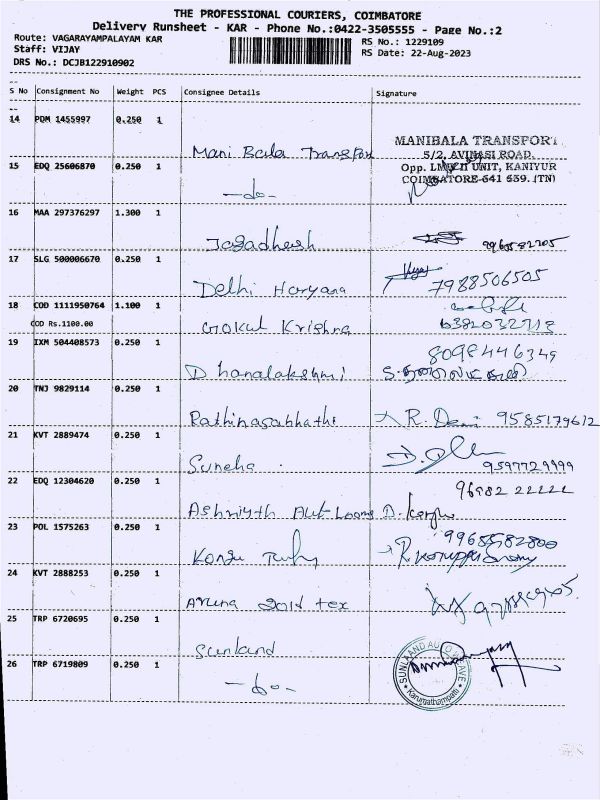 THE PROFESSIONAL COURIERS, COIMBATORE
Delivery Runsheet - KAR - Phone No.:0422-3505555 - Page No.:2
Route: VAGARAYAMPALAYAM KAR
RS No.: 1229109
Staff: VIJAY
RS Date: 22-Aug-2023
DRS No.: DCJB122910902
S No Consignment No Weight PCS Consignee Details Signature
14 PDM 1455997 0.250 1
Mani Bala Transport
MANIBALA TRANSPORT
5/2, AVINASI ROAD,
15 EDQ 25606870 0.250 1
Opp. UNIT, KANIYUR
COIMBATORE-641 659. (TN)
-do-
16 MAA 297376297 1.300 1
Jagadhesh
17 SLG 500006670 0.250 1
Delhi Haryana 7988506505
18 COD 1111950764 1.100 1
COD Rs.1100.00
Gokul Krishna
19 IXM 504408573 0.250 1
8098446349
Dhanalakshmi
20 TNJ 9829114 0.250 1
Rathinasabhathi R. Devi 9585179612
21 KVT 2889474 0.250 1
Suneha 9597729999
22 EDQ 12304620 0.250 1
96982 22222
23 POL 1575263 0.250 1
Kongu
24 KVT 2888253 0.250 1
Aruna Gold tex
25 TRP 6720695 0.250 1
Sunland
26 TRP 6719809 0.250 1
-do-
SUNLAAND AUTO WEAVE
Karumathampatti